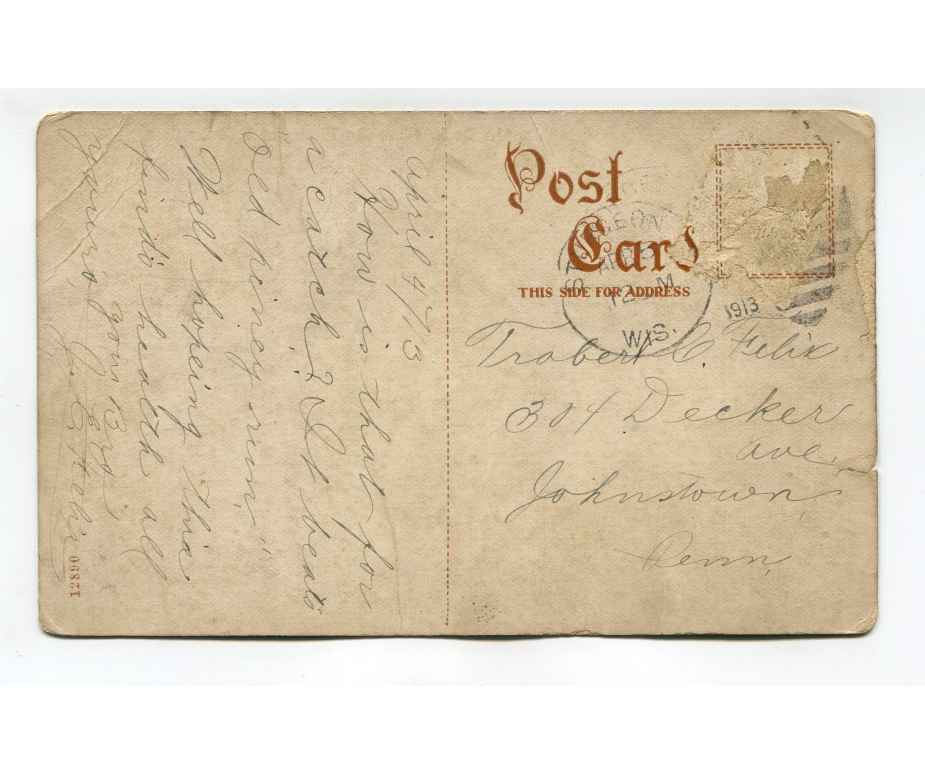 april 4/13
How is that for
a catch? It beats
Old piney run,"
Well hopeing this
finds health all
yours, your Bro
J. C. Felix
12890
Post
Card
THIS SIDE FOR ADDRESS
12 M
1913
WIS.
Trabert C. Felix
304 Decker
ave.
Johnstown,
Penn,